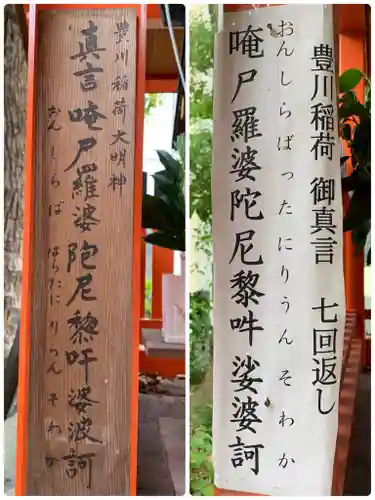 豊川稲荷大明神
真言唵尸羅婆陀尼黎吽娑婆訶
おんしらばばらたにりうんそわか
豊川稲荷 御真言 七回返し
おんしらばったにりうんそわか
唵尸羅婆陀尼黎吽娑婆訶